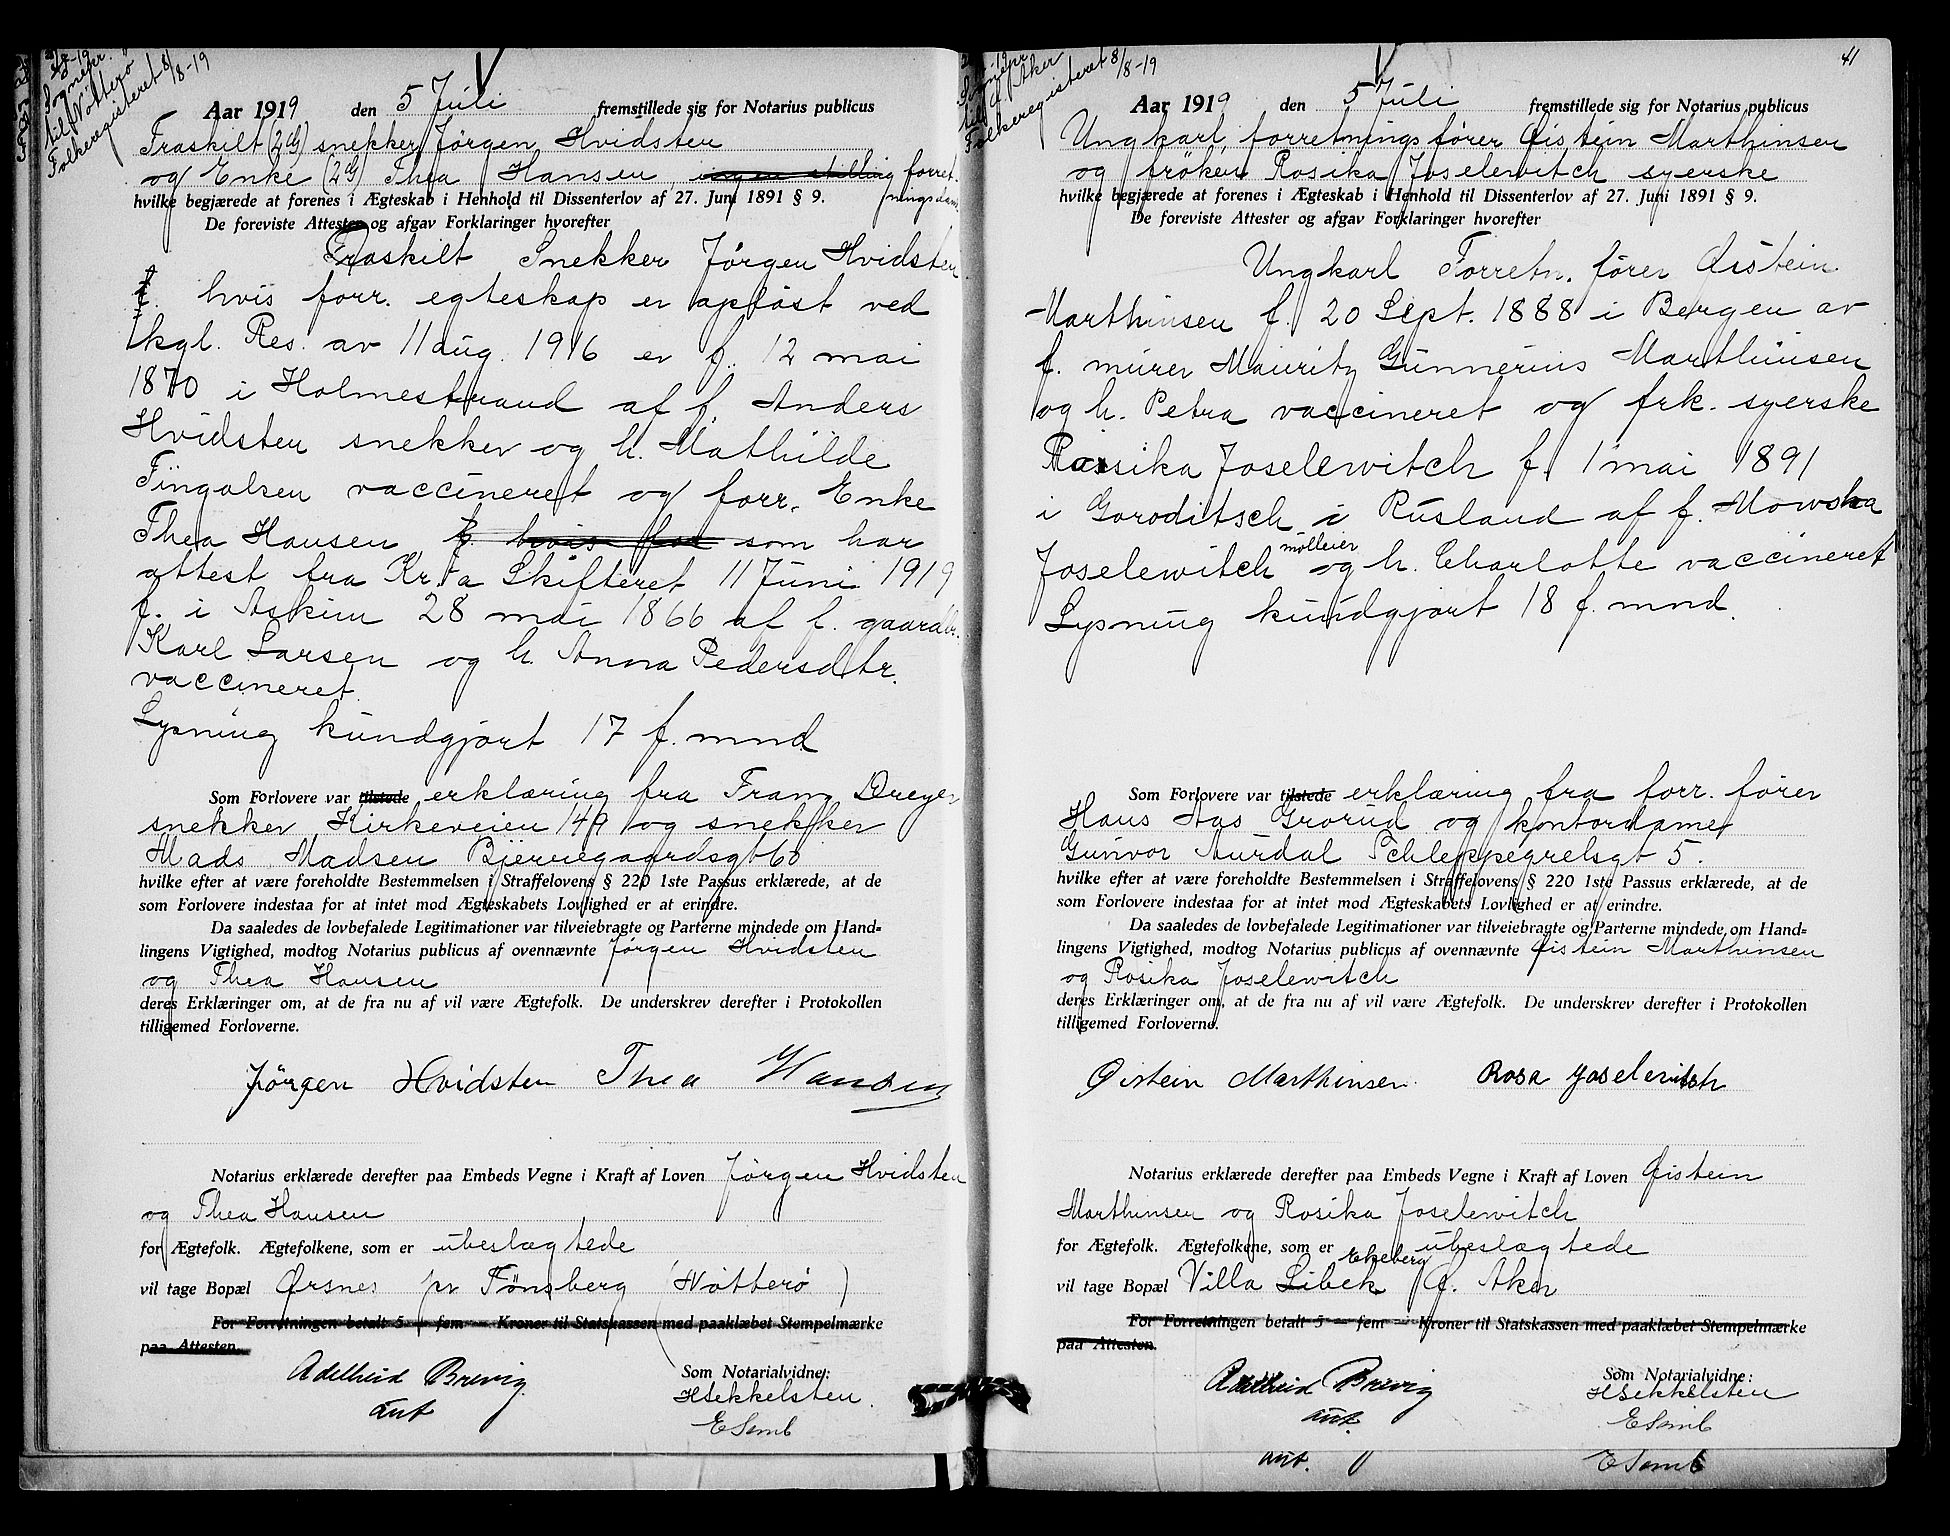 til Nøtterø
Folkeregisteret 8/8-19
Aar 1919 den 5 Juli fremstillede sig for Notarius publicus
Fraskilt (2G) snekker Jørgen Hvidsten
og Enke (2G) Thea Hansen, ingen stilling forret-
ningsdame
hvilke begjærede at forenes i Ægteskab i Henhold til Dissenterlov af 27. Juni 1891 § 9.
De foreviste Attester og afgav Forklaringer hvorefter
Fraskilt Snekker Jørgen Hvidsten
hvis forr. egteskap er opløst ved
kgl. Res. av 11 aug. 1916 er f. 12 mai
1870 i Holmestrand af f. Anders
Hvidsten snekker og h. Mathilde
Fingalsen vaccineret og forr. Enke
Thea Hansen, f. hvis for som har
attest fra Kr.ia Skifteret 11 Juni 1919
f. i Askim 28 mai 1866 af f. gaardbr.
Karl Larsen og h. Anna Pedersdtr.
vaccineret.
Lysning kundgjort 17 f. mnd.
Som Forlovere var tilstede erklæring fra Franz Dreyer
snekker Kirkeveien 149 og snekker
Mads Madsen Bjerregaardsgt 60
hvilke efter at være foreholdte Bestemmelsen i Straffelovens § 220 1ste Passus erklærede, at de
som Forlovere indestaa for at intet mod Ægteskabets Lovlighed er at erindre.
Da saaledes de lovbefalede Legitimationer var tilveiebragte og Parterne mindede om Hand=
lingens Vigtighed, modtog Notarius publicus af ovennævnte Jørgen Hvidsten
og Thea Hansen
deres Erklæringer om, at de fra nu af vil være Ægtefolk. De underskrev derefter i Protokollen
tilligemed Forloverne.
Jørgen Hvidsten Thea Hansen
Notarius erklærede derefter paa Embeds Vegne i Kraft af Loven Jørgen Hvidsten
og Thea Hansen
for Ægtefolk. Ægtefolkene, som er ubeslægtede
vil tage Bopæl Ørsnes pr Tønsberg (Nøtterø)
For Forretningen betalt 5 – fem – Kroner til Statskassen med paaklæbet Stempelmærke
paa Attesten.
Adelheid Brevig
aut
Som Notarialvidne:
H Sekkelsten.
E Semb
41
Folkeregisteret 8/8-19
Aar 1919 den 5 Juli fremstillede sig for Notarius publicus
Ungkarl forretningsfører Øistein Marthinsen
og frøken Rosika Joselewitch syerske
hvilke begjærede at forenes i Ægteskab i Henhold til Dissenterlov af 27. Juni 1891 § 9.
De foreviste Attester og afgav Forklaringer hvorefter
Ungkarl Forretn. fører Øistein
Marthinsen f. 20 Sept. 1888 i Bergen av
f. murer Mauritz Gunnerius Marthinsen
og h. Petra vaccineret og frk. syerske
Rosika Joselewitch f. 1 mai 1891
i Goroditsch i Rusland af f. Mowska
Joselewitch mølleier og h. Charlotte vaccineret
Lysning kundgjort 18 f. mnd.
Som Forlovere var tilstede erklæring fra forr. fører
Hans Aas Grorud og kontordame
Gunvor Aurdal Schleppegrelsgt 5.
hvilke efter at være foreholdte Bestemmelsen i Straffelovens § 220 1ste Passus erklærede, at de
som Forlovere indestaa for at intet mod Ægteskabets Lovlighed er at erindre.
Da saaledes de lovbefalede Legitimationer var tilveiebragte og Parterne mindede om Hand=
lingens Vigtighed, modtog Notarius publicus af ovennævnte Øistein Marthinsen
og Rosika Joselewitch
deres Erklæringer om, at de fra nu af vil være Ægtefolk. De underskrev derefter i Protokollen
tilligemed Forloverne.
Øistein Marthinsen. Rosa Joselewitch
Notarius erklærede derefter paa Embeds Vegne i Kraft af Loven Øistein
Marthinsen og Rosika Joselewitch
for Ægtefolk. Ægtefolkene, som er ubeslægtede
vil tage Bopæl Villa Libek Ekeberg Ø. Aker
For Forretningen betalt 5 – fem – Kroner til Statskassen med paaklæbet Stempelmærke
paa Attesten.
Adelheid Brevig
aut.
Som Notarialvidne:
H Sekkelsten
E Semb
aut.
E Semb